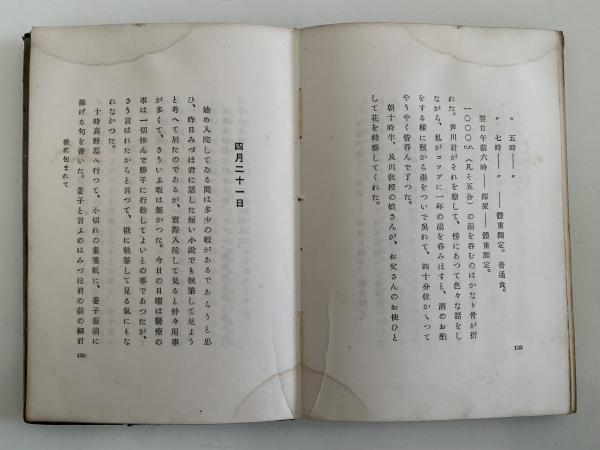 〃 五時――〃 ――體重測定。普通食。
〃 七時――〃
翌日午前六時――採尿――體重測定。
一〇〇〇cc（凡そ五合）の湯を呑むのはかなり骨が折
れた。芦川君がそれを察して、傍にあつて色々な話をし
ながら、私がコップに一杯の湯を呑みほすと、酒のお酌
をする樣に瓶から湯をついで呉れて、四十分位かゝつて
やうやく皆呑んで了つた。
朝十時半、及川教授の娘さんが、お父さんのお使ひと
して花を持參してくれた。
133
四月二十一日
始め入院してゐる間は多少の暇があるであらうと思
ひ、昨日みづほ君に話した短い小說でも執筆して見よう
と考へて居たのであるが、實際入院して見ると仲々用事
が多くて、さういふ暇は無かつた。今日の日曜は醫療の
事は一切休んで勝手に行動してよいとの事であつたが、
さう言はれたからと言つて、俄に執筆して見る氣にもな
れなかつた。
十時高野邸へ行つて、小切れの畫箋紙に、姜子靈前に
捧げる句を書いた。姜子と言ふのはみづほ君の前の細君
後に包まれて